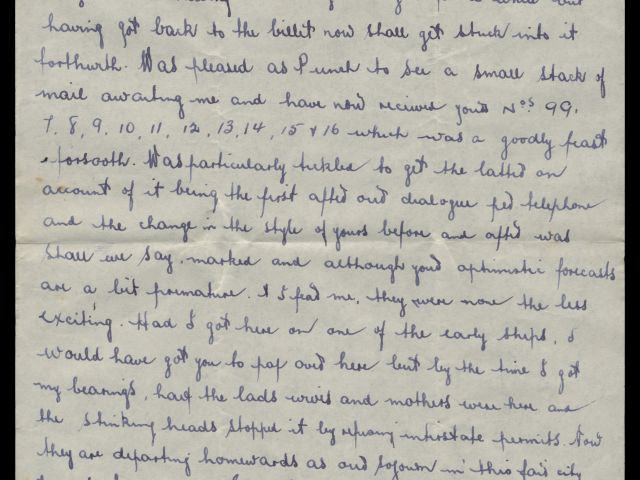 having got back to the billit now shall get stuck into it
forthwith. Was pleased as Punch to see a small stack of
mail awaiting me and have now received yours Nos. 99,
7, 8, 9, 10, 11, 12, 13, 14, 15 & 16 which was a goodly feast
forsooth. Was particularly tickled to get the latter on
account of it being the first after our dialogue per telephone
and the change in the style of yours before and after was
shall we say, marked and although your optimistic forecasts
are a bit premature. I fear me, they were none the less
exciting. Had I got here on one of the early ships, I
would have got you to pop over here but by the time I got
my bearings, half the lads wives and mothers were here and
the stinking heads stopped it by refusing interstate permits. Now
they are departing homewards as our sojourn in this fair city